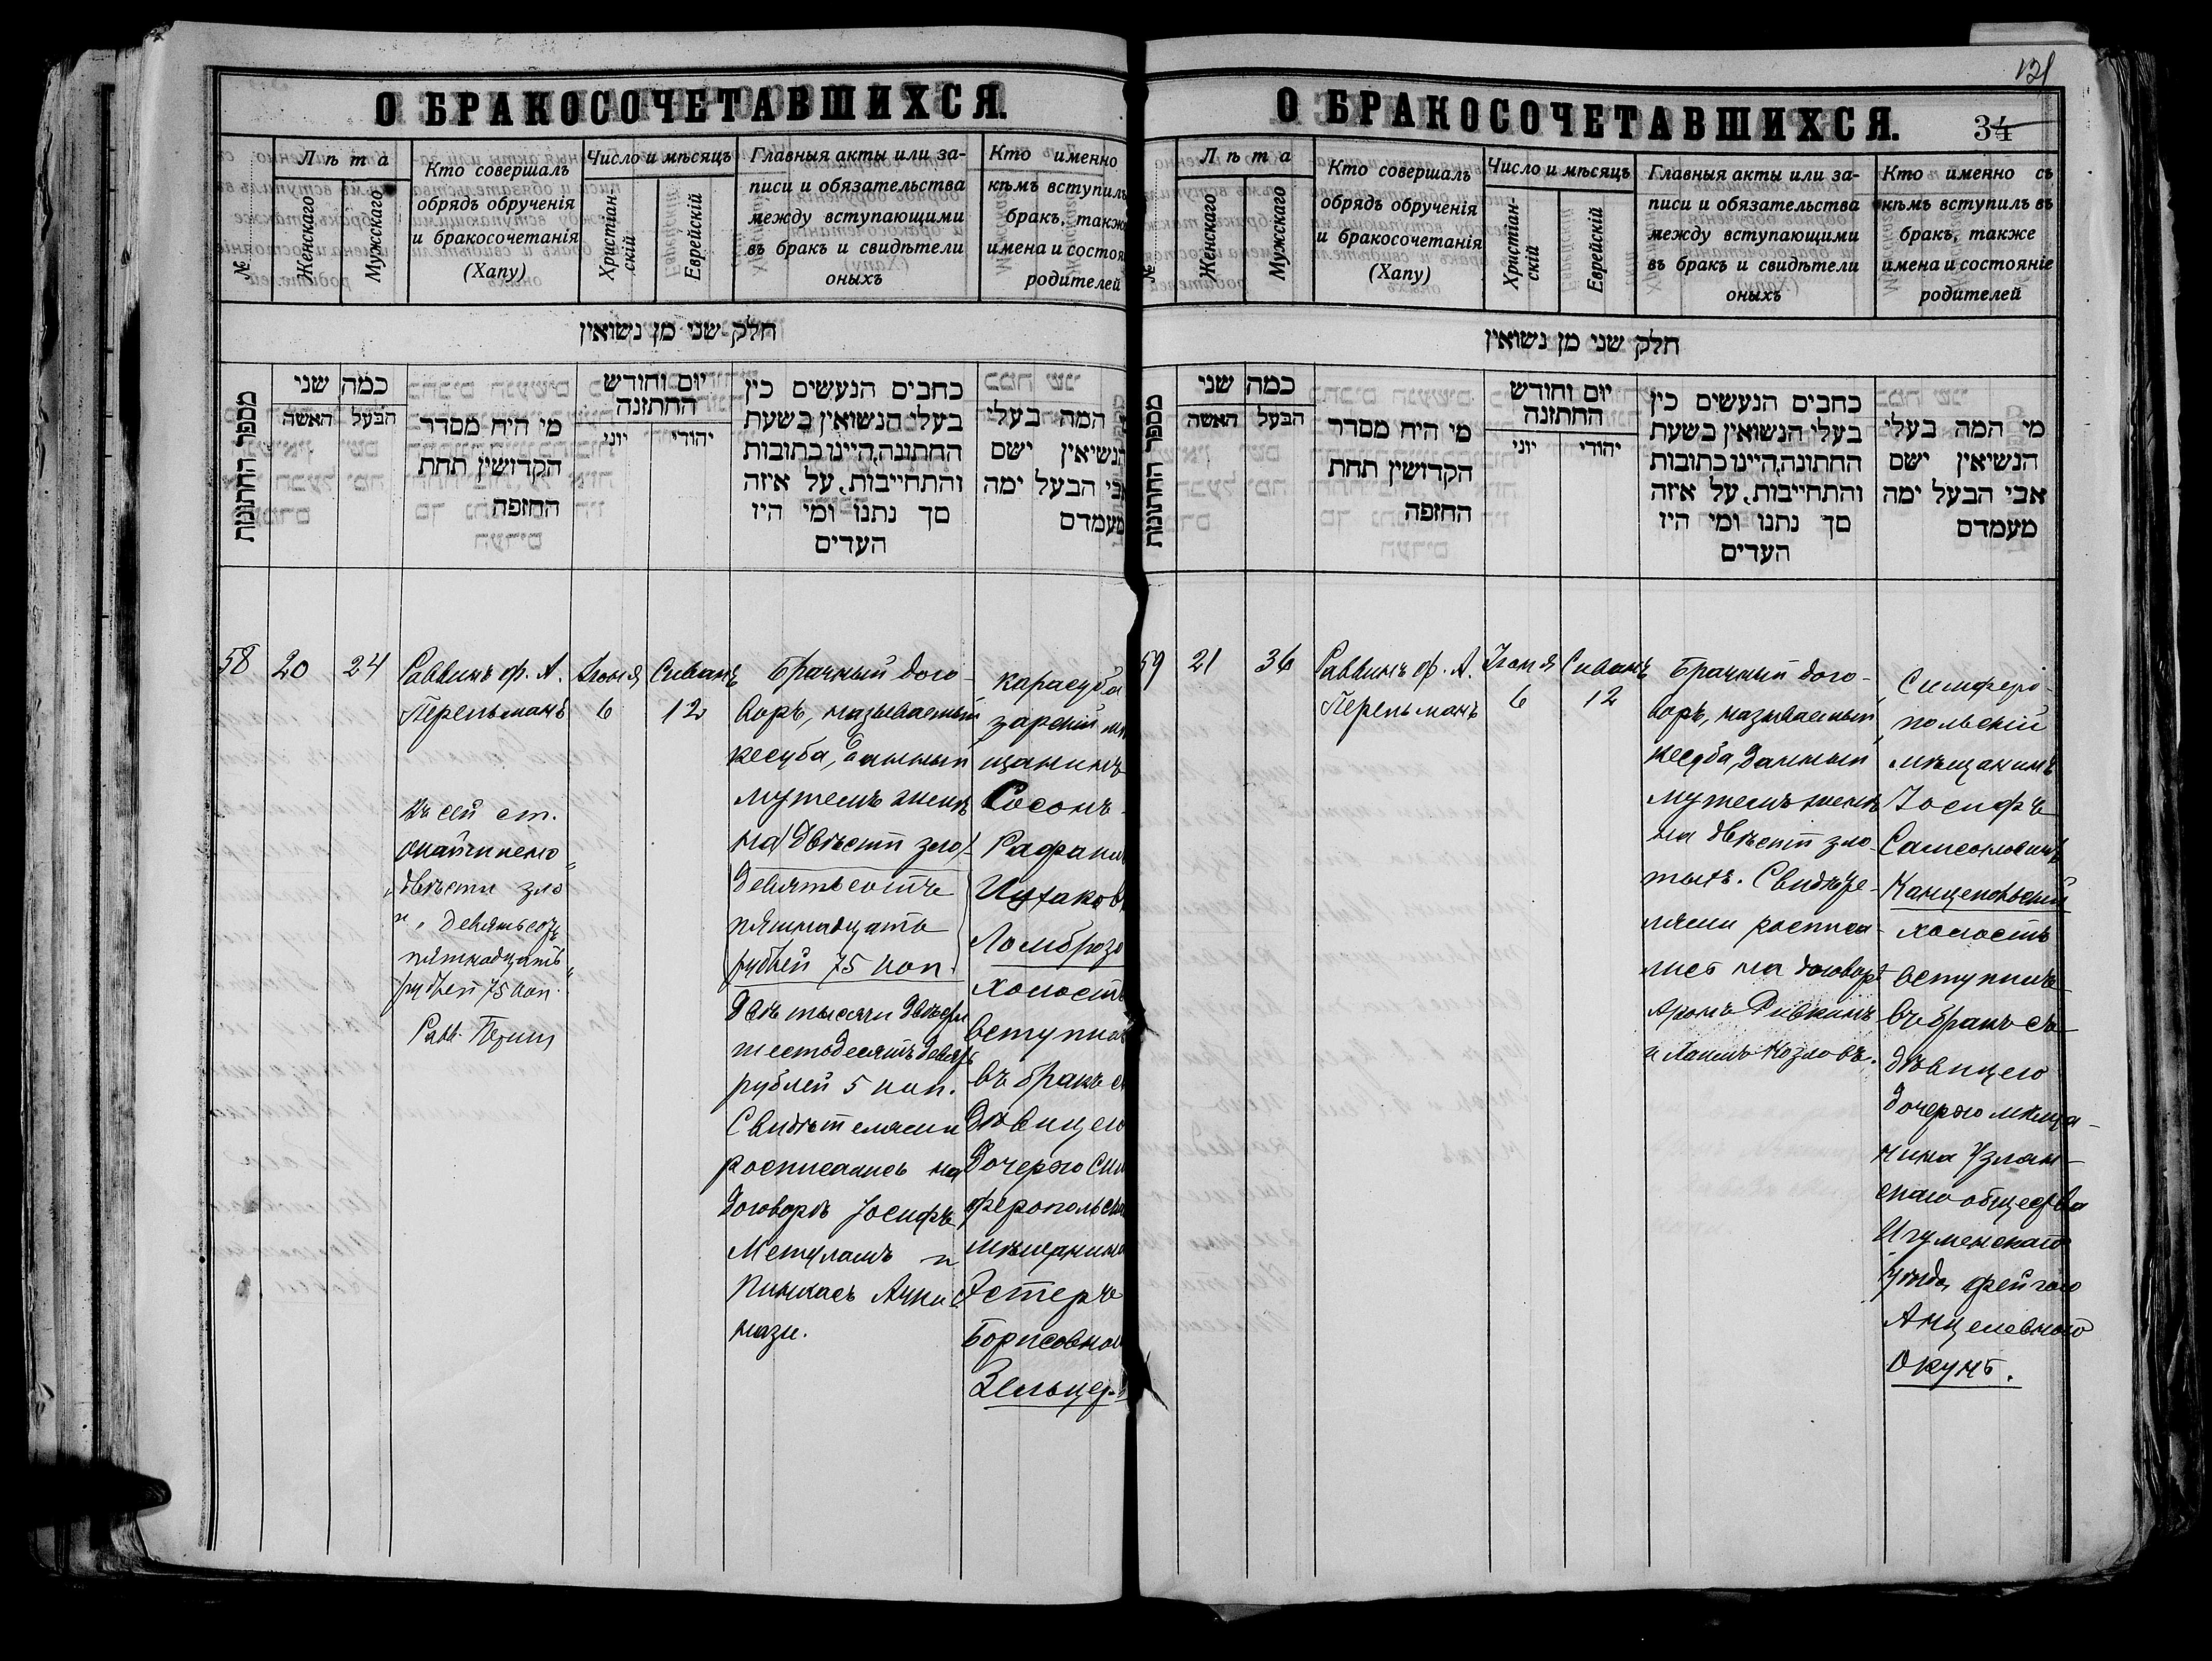 О БРАКОСОЧЕТАВШИХСЯ.
№
Лѣта
Женскаго
Мужскаго
Кто совершалъ
обрядъ обрученія
и бракосочетанія
(Хапу)
Число и мѣсяцъ
Христіан-
скій
Еврейскій
Главныя акты или за-
писи и обязательства
между вступающими
въ бракъ и свидѣтели
оныхъ
Кто именно
кѣмъ вступилъ
бракъ, также
имена и состоя
родителей
חלק שני מן נשואין
מספר החתונות
כמה שני
האשה
הבעל
מי היח מסדר
הקדושין תחת
החופה
יום וחודש
החתונה
יוני
יהודי
כתבים הנעשים כין
בעלי הנשואין בשעת
החתונה,היינו כתובות
והתחייבות, על איזה
סך נתנו ומי היו
העדים
המה בעלי
הנשיאין ישם
אבי הבעל ימה
מעמדם
58
20
24
Раввинъ ф. А.
Перельманъ
Въ сей ст.
двѣсти зло
" девятьсотъ
пятнадцать
рублей 75 коп.
Равв.
Іюня
6
Сиванъ
12
Брачный дого-
воръ, называемый
кесуба, данный
мужемъ женѣ
на двѣсти зло
девятьсотъ
пятнадцать
рублей 75 коп.
двѣ тысячи двѣсти
шестьдесятъ девять
рублей 5 коп.
Свидѣтелями
росписались на
договорѣ Іосифъ
Мешуламъ и
Пинхасъ Ачки
нази.
Карасуба
зарскій мѣ
щанинъ
Сосонъ
Рафаил
Ицхаков
Ломброзо
холостъ
вступил
въ бракъ с
дѣвицею
дочерью Сим
феропольск
мѣщанина
Эстеръ
Борисовною
Зельцер
О БРАКОСОЧЕТАВШИХСЯ.
121
34
№
Лѣта
Женскаго
Мужскаго
Кто совершалъ
обрядъ обрученія
и бракосочетанія
(Хапу)
Число и мѣсяцъ
Христіан-
скій
Еврейскій
Главныя акты или за-
писи и обязательства
между вступающими
въ бракъ и свидѣтели
оныхъ
Кто именно съ
кѣмъ вступилъ въ
бракъ, также
имена и состояніе
родителей
חלק שני מן נשואין
מספר החתונות
כמה שני
האשה
הבעל
מי היח מסדר
הקדושין תחת
החופה
יום וחודש
החתונה
יוני
יהודי
כתבים הנעשים כין
בעלי הנשואין בשעת
החתונה,היינו כתובות
והתחייבות, על איזה
סך נתנו ומי היו
העדים
מי המה בעלי
הנשיאין ישם
אבי הבעל ימה
מעמדם
59
21
36
Раввинъ ф. А.
Перельманъ
Іюня
6
Сиванъ
12
Брачный дого-
воръ, называемый
кесуба, данный
мужемъ женѣ
на двѣсти зло-
тыхъ. Свидѣте-
лями росписа-
лись на договорѣ
Аронъ Ривкинъ
и Хаимъ Козловъ.
Симферо-
польскій
мѣщанинъ
Іосифъ
Самсоновичъ
холостъ
вступилъ
въ бракъ съ
дѣвицею
дочерью мѣща-
нина Узлян-
скаго общества
Игуменскаго
уѣзда, Фейгою
Анцелевною
Окунь.